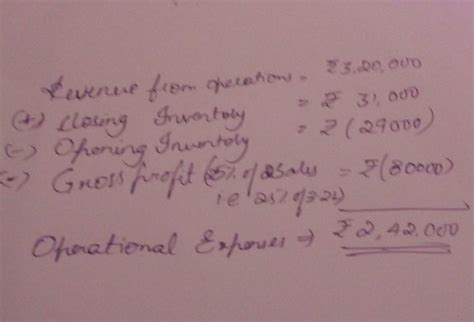 Revenue from operations = ₹3,20,000
(+) Closing Inventory = ₹ 31,000
(-) Opening Inventory = ₹(29000)
(-) Gross profit (25% of Sales = ₹(80000)
i.e 25% of 3.2L)
Operational Expenses → ₹2,42,000